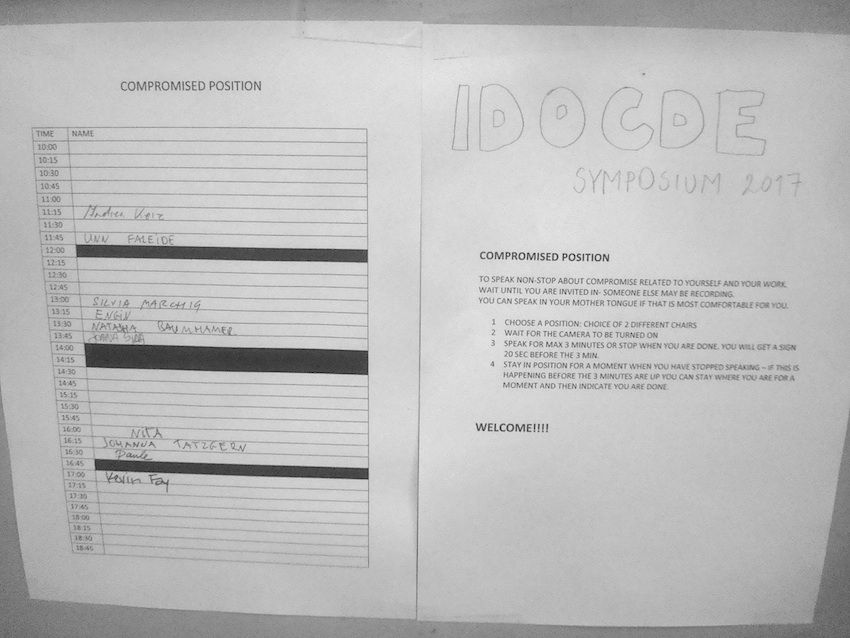 COMPROMISED POSITION
TIME NAME
10:00
10:15
10:30
10:45
11:00
11:15
11:30
11:45 UNN FALEIDE
12:00
12:15
12:30
12:45
13:00 SILVIA MARCHIG
13:15 ENGIN
13:30 NATASHA BAUMHAMER
13:45
14:00
14:15
14:30
14:45
15:15
15:30
15:45
16:00 NITA
16:15 JOHANNA TATZGERN
16:30 Paule
16:45
17:00 Kevin Fay
17:15
17:30
17:45
18:00
18:15
18:30
18:45
IDOCDE
SYMPOSIUM 2017
COMPROMISED POSITION
TO SPEAK NON-STOP ABOUT COMPROMISE RELATED TO YOURSELF AND YOUR WORK.
WAIT UNTIL YOU ARE INVITED IN- SOMEONE ELSE MAY BE RECORDING.
YOU CAN SPEAK IN YOUR MOTHER TONGUE IF THAT IS MOST COMFORTABLE FOR YOU.
1 CHOOSE A POSITION: CHOICE OF 2 DIFFERENT CHAIRS
2 WAIT FOR THE CAMERA TO BE TURNED ON
3 SPEAK FOR MAX 3 MINUTES OR STOP WHEN YOU ARE DONE. YOU WILL GET A SIGN
20 SEC BEFORE THE 3 MIN.
4 STAY IN POSITION FOR A MOMENT WHEN YOU HAVE STOPPED SPEAKING – IF THIS IS
HAPPENING BEFORE THE 3 MINUTES ARE UP YOU CAN STAY WHERE YOU ARE FOR A
MOMENT AND THEN INDICATE YOU ARE DONE.
WELCOME!!!!